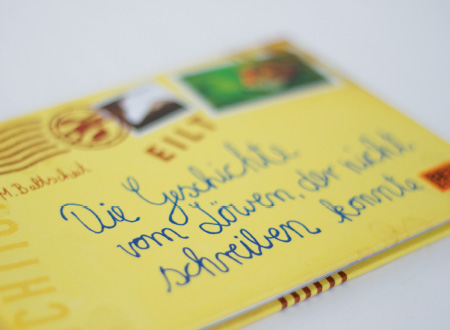 EILT
M. Baltscheit
Die Geschichte
vom Löwen, der nicht
schreiben konnte